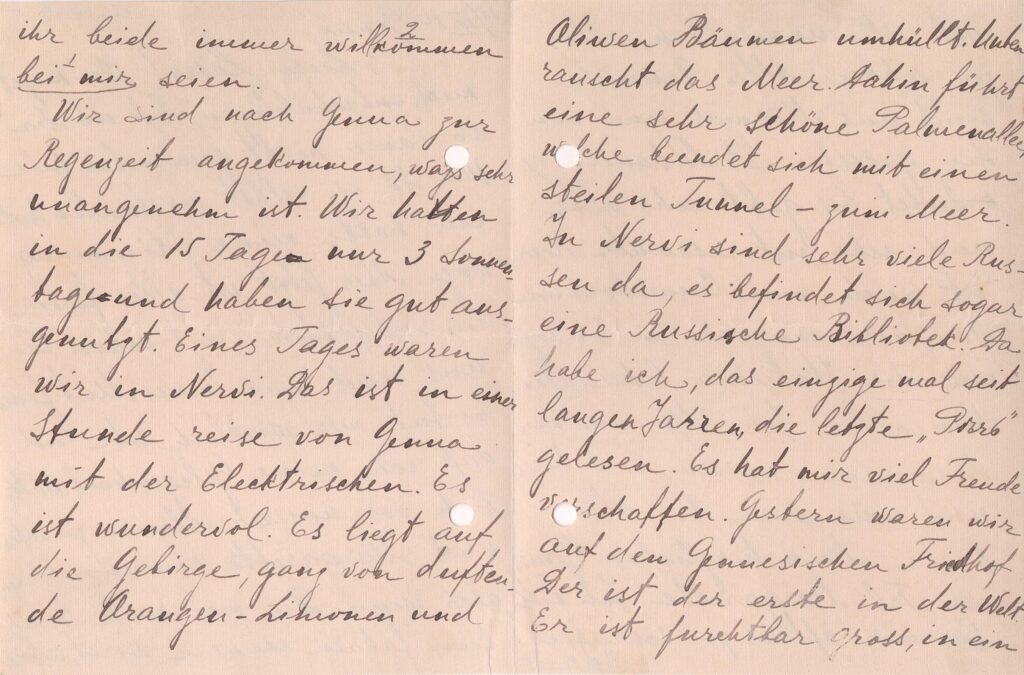 ihr beide immer willkommen 2
bei 1 mir seien.
Wir sind nach Genua zur
Regenzeit angekommen, was sehr
unangenehm ist. Wir hatten
in die 15 Tage nur 3 Sonnen
tage und haben sie gut aus-
genutzt. Eines Tages waren
wir in Nervi. Das ist in einer
Stunde reise von Genua
mit der Elecktrischen. Es
ist wundervol. Es liegt auf
die Gebirge, ganz von duften-
de Orangen-Limonen und
Oliwen Bäumen umhüllt. Unten
rauscht das Meer. Dahin führt
eine sehr schöne Palmenallee,
welche beendet sich mit einen
steilen Tunnel – zum Meer.
In Nervi sind sehr viele Rus-
sen da, es befindet sich sogar
eine Russische Bibliotek. Da
habe ich, das einzige mal seit
langen Jarren, die letzte „
gelesen. Es hat mir viel Freude
verschaffen. Gestern waren wir
auf den Genuesischen Friedhof
Der ist der erste in der Welt.
Er ist furchtbar gross, in ein